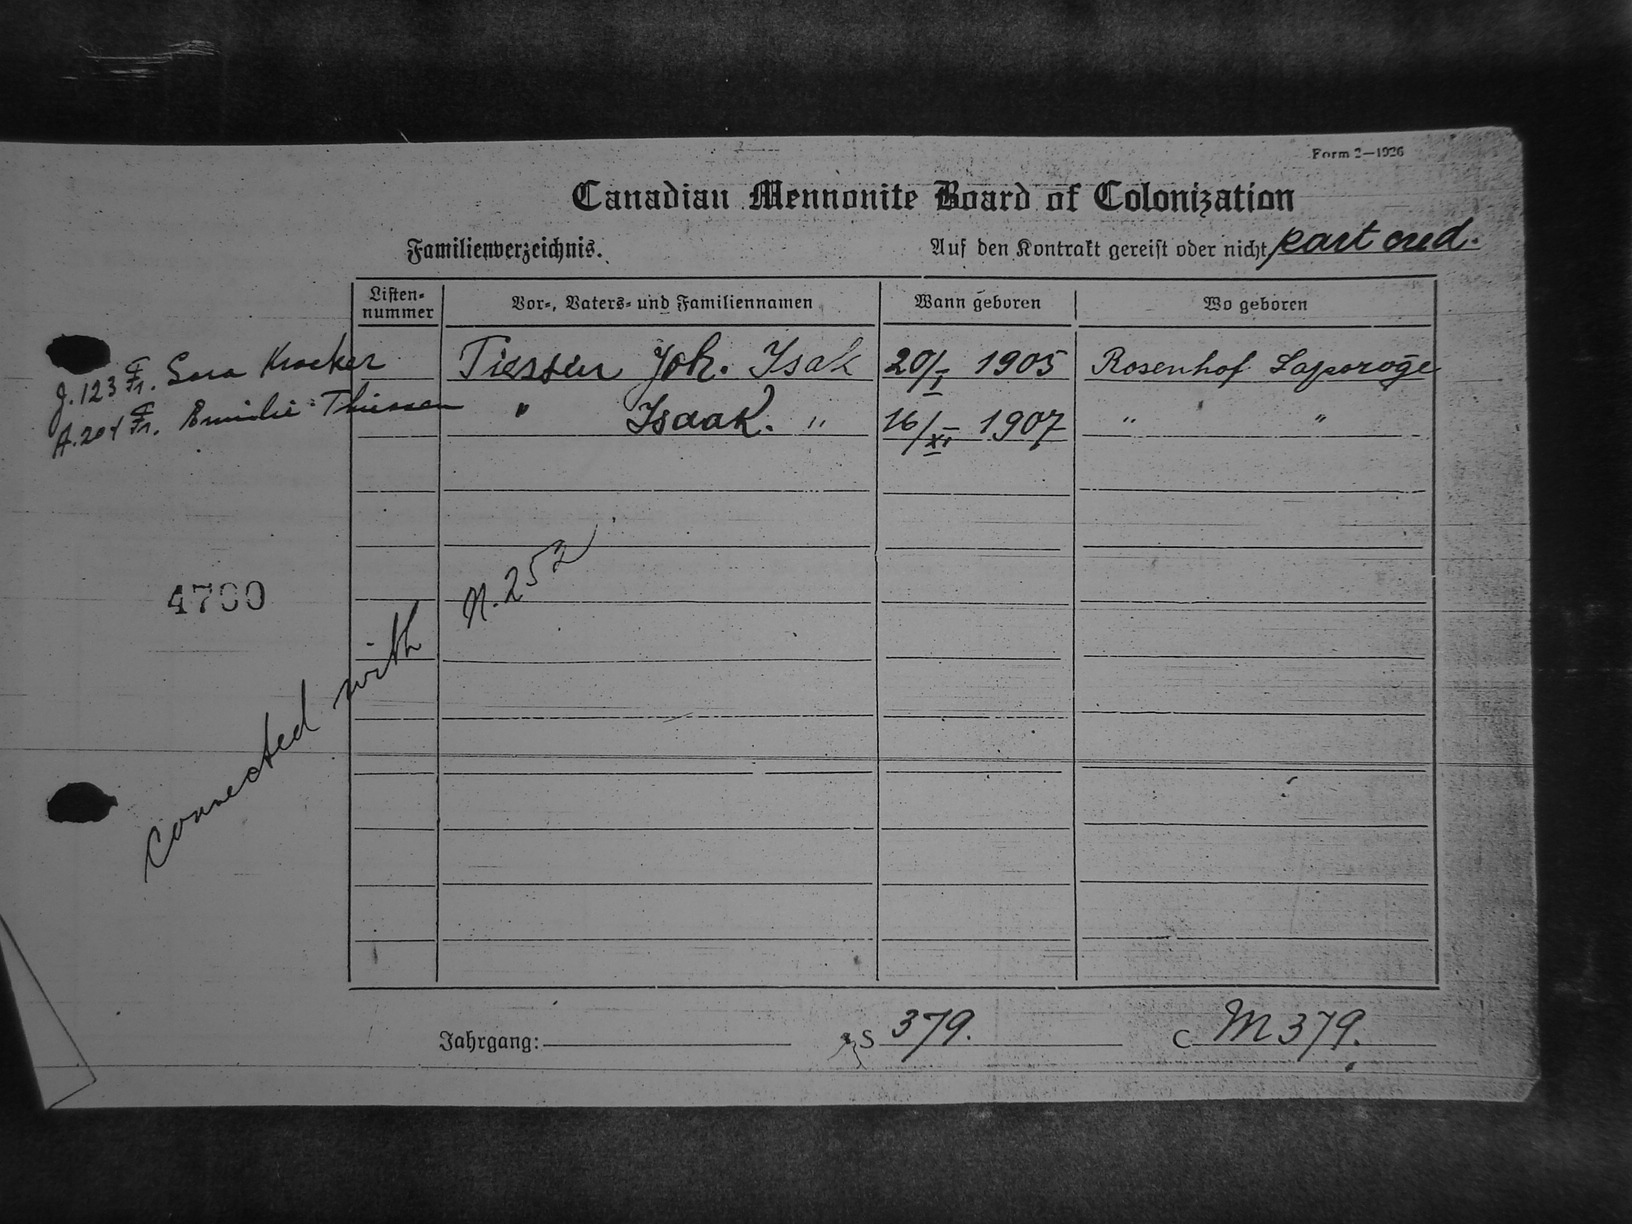 Form 2—1926
Canadian Mennonite Board of Colonization
Familienverzeichnis. Auf den Kontrakt gereist oder nicht part cred.
Listen-nummer Vor-, Vaters- und Familiennamen Wann geboren Wo geboren
J. 123 Fr. Sara Kroeker Tiessen Joh. Isak 20/I 1905 Rosenhof Saporoge
A. 204 Fr. Emilie Thiessen " Isaak. " 16/XI 1907 " "
4700
connected with N. 252
Jahrgang: S 379. C M 379.